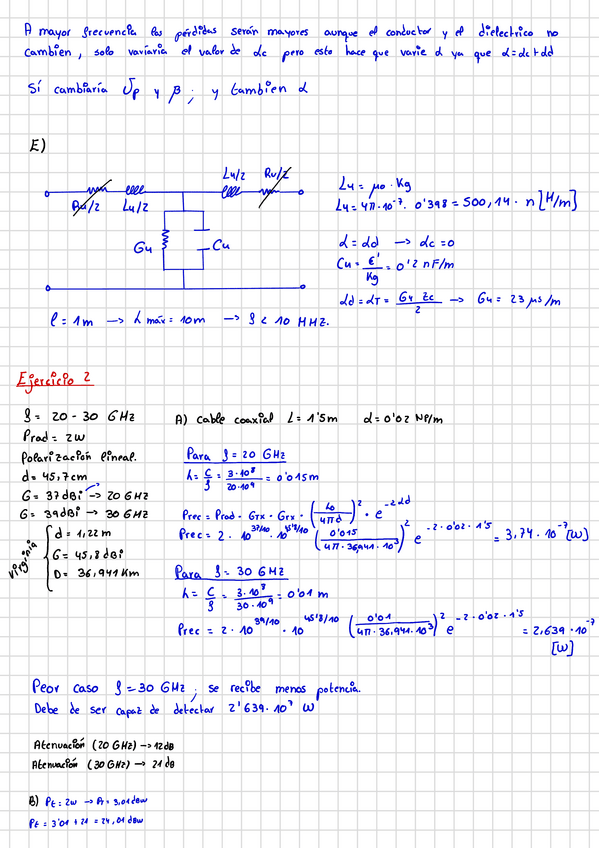 A mayor frecuencia las pérdidas serán mayores aunque el conductor y el dielectrico no
cambien, solo variaría el valor de αc pero esto hace que varie α ya que α=αc+αd
Sí cambiaría Up y β; y tambien α
E)
Lu/2 Ru/2
Ru/2 Lu/2
Gu Cu
Lu = μo · Kg
Lu = 4π·10⁻⁷ · 0'398 = 500,14 · n [H/m]
α = αd → αc = 0
Cu = ε'/Kg = 0'2 nF/m
αd = αT = Gu Zc/2 → Gu = 23 μs/m
l = 1m → λ máx = 10m → f < 10 MHZ.
Ejercicio 2
f = 20 - 30 GHz
Prad = 2W
Polarización lineal.
d = 45,7cm
G = 37dBi → 20 GHz
G = 39dBi → 30 GHz
virginia
d = 1,22m
G = 45,8 dBi
D = 36,941 Km
A) cable coaxial L = 1'5m α = 0'02 NP/m
Para f = 20 GHz
λ = c/f = 3·10⁸/20·10⁹ = 0'015m
Prec = Prad · GTX · GTX · (λo/4πd)² · e^-2αd
Prec = 2 · 10^37/10 · 10^45'8/10 (0'015/4π·36,941·10³)² e^-2·0'02·1'5 = 3,74 · 10⁻⁷ [W]
Para f = 30 GHz
λ = c/f = 3·10⁸/30·10⁹ = 0'01 m
Prec = 2 · 10^39/10 · 10^45'8/10 (0'01/4π·36,941·10³)² e^-2·0'02·1'5 = 2,639 · 10⁻⁷
[W]
Peor caso f = 30 GHz; se recibe menos potencia.
Debe de ser capaz de detectar 2'639·10⁷ W
Atenuación (20 GHz) → 12dB
Atenuación (30 GHz) → 21 dB
B) Pt = 2W → Pt = 3,01 dBW
Pt = 3'01 + 21 = 24,01 dBW